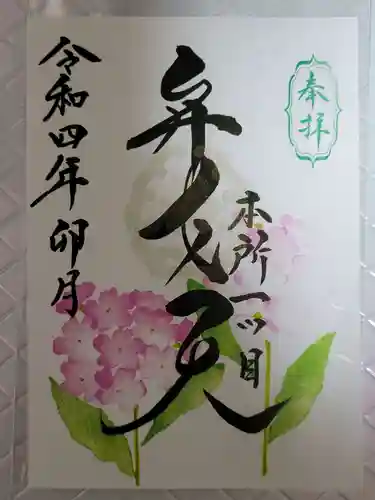 奉拝
本所一ツ目
弁才天
令和四年卯月